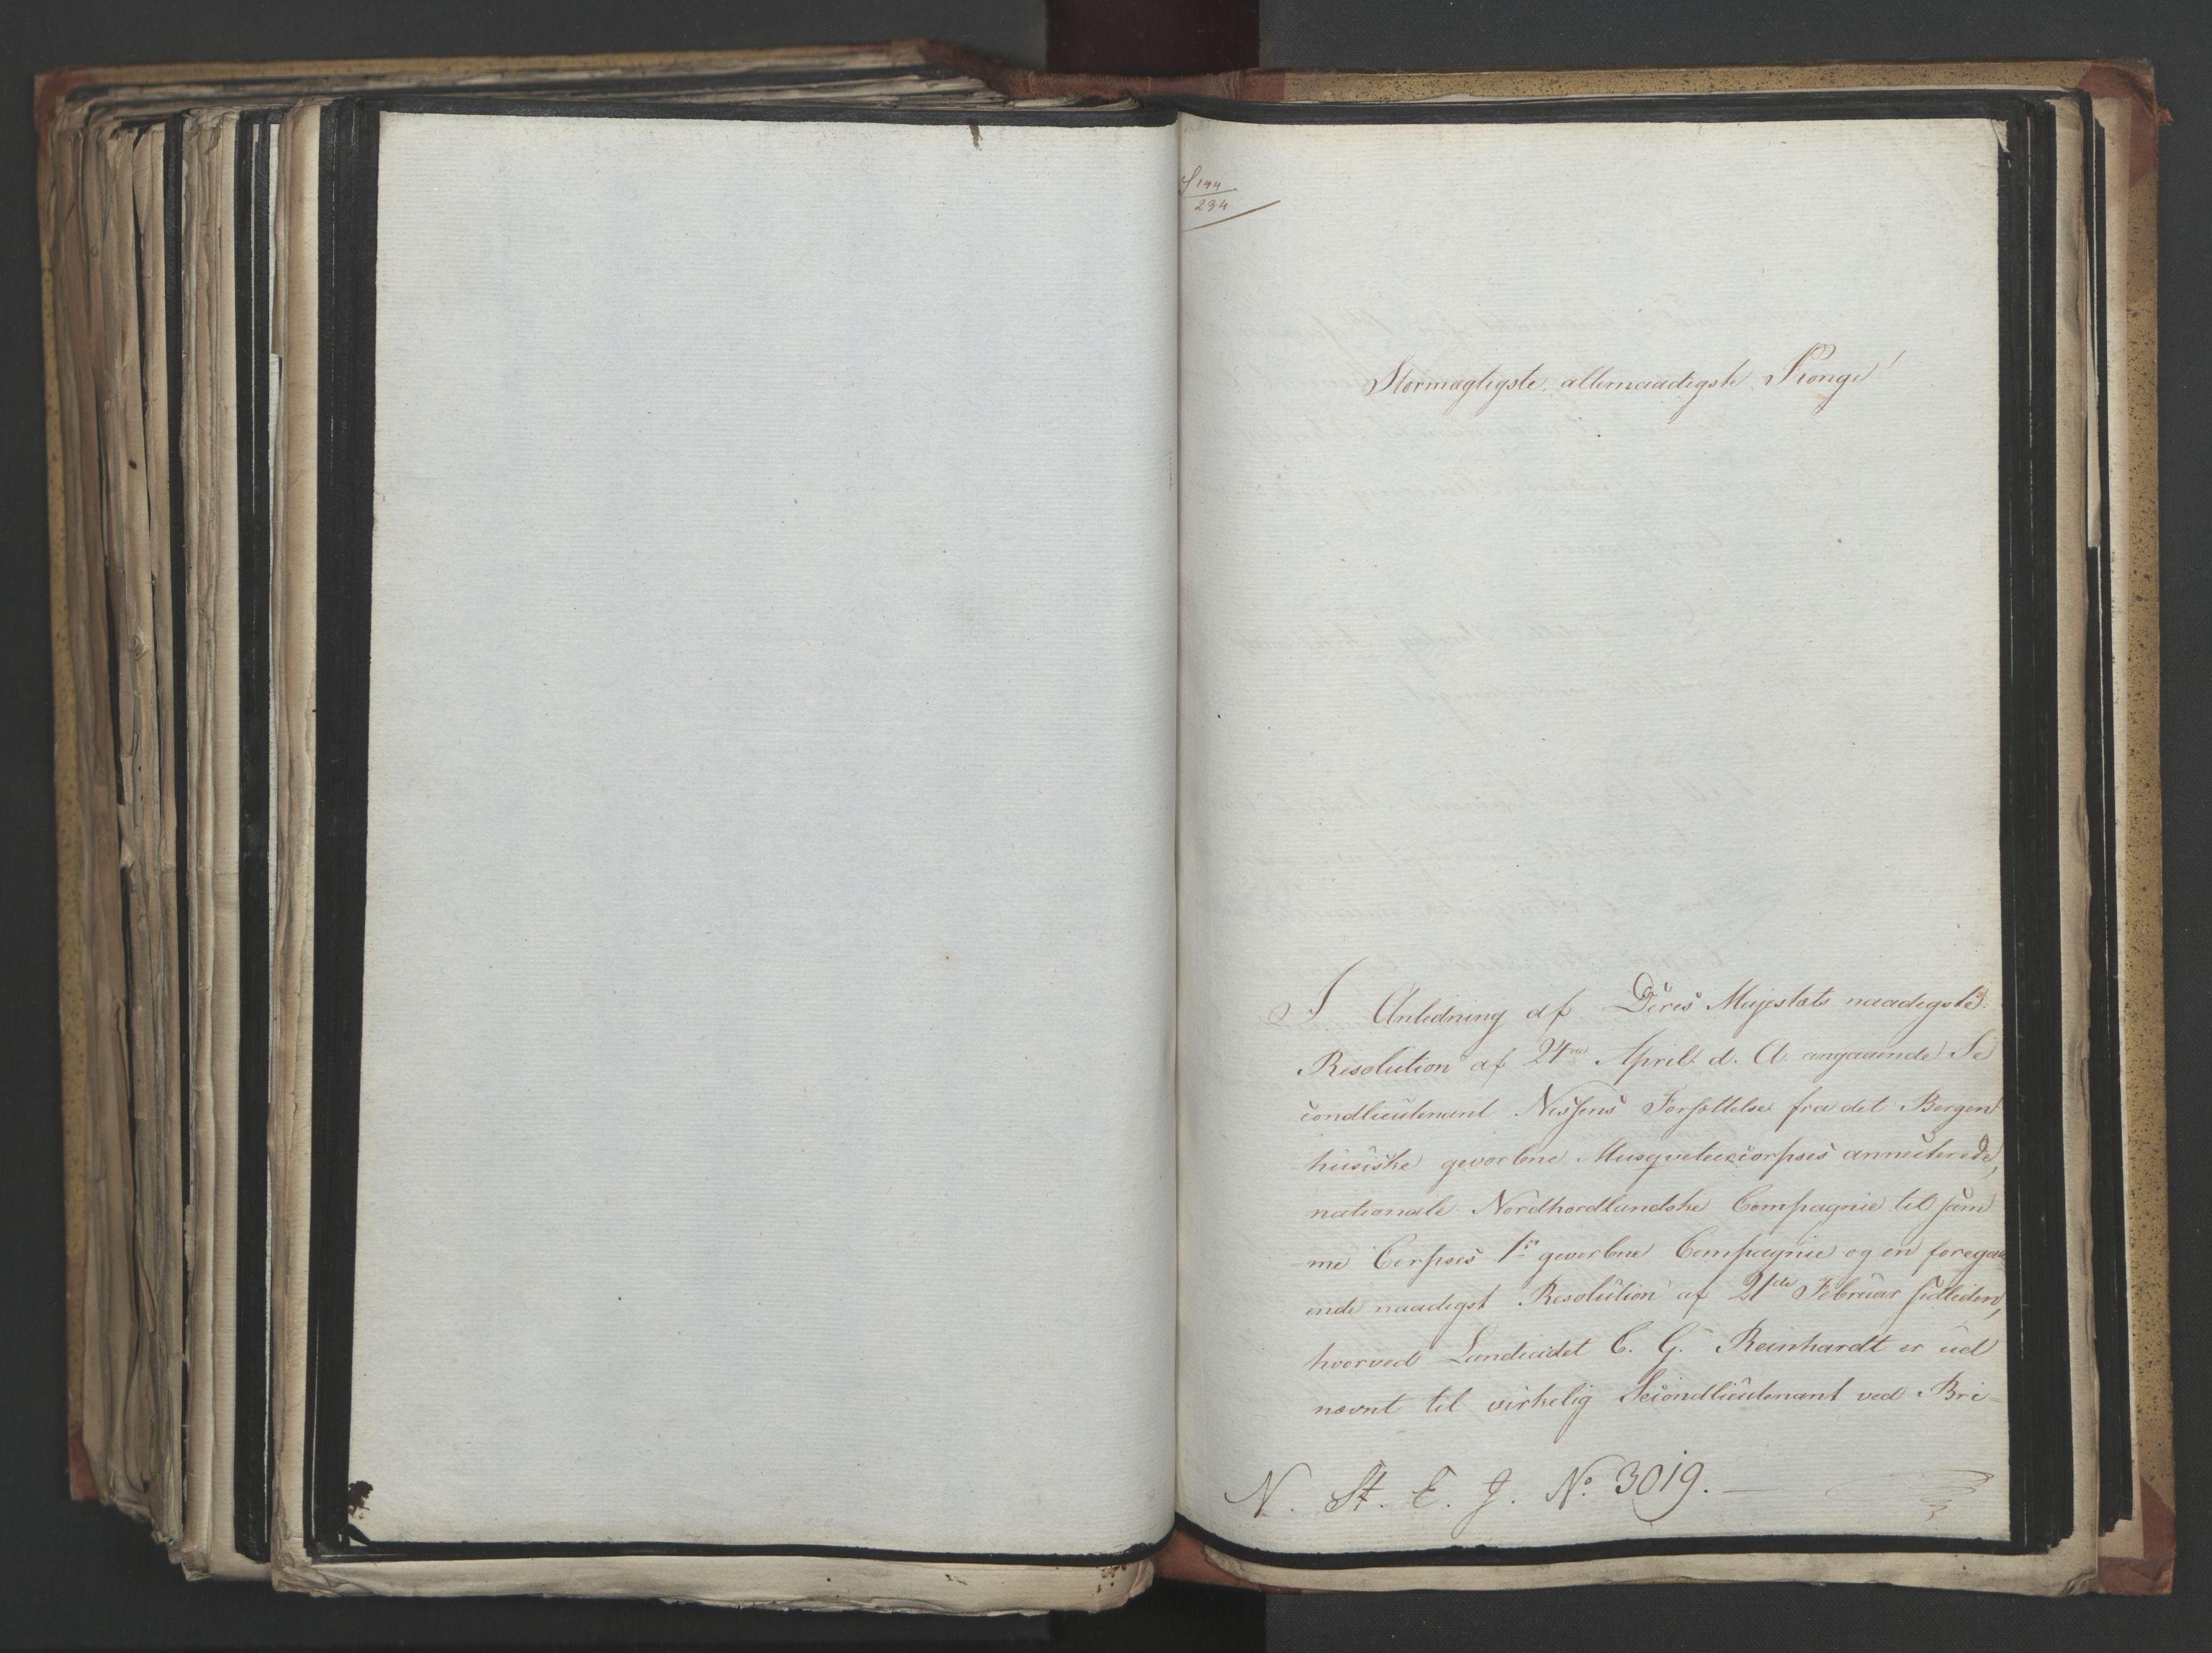 S 144
234
Stormægtigste allernaadigste Konge!
I Anledning af Deres Majestæts naadigste
Resolution af 24de April d. A. angaaende Se
condlieutenant Nissens Forsættelse fra det Bergen
huusiske gevorbne Musqueteercorpses annecterede,
nationale Nordhordlandske Compagnie til sam
me Corpses 1ste gevorbne Compagnie og en foregaa
ende naadigst Resolution af 21de Februar sidleden,
hvorved Landcadet C. G. Reinhardt er ud
nævnt til virkelig Secondlieutenant ved Bri-
N. St. E. J. No. 3019.